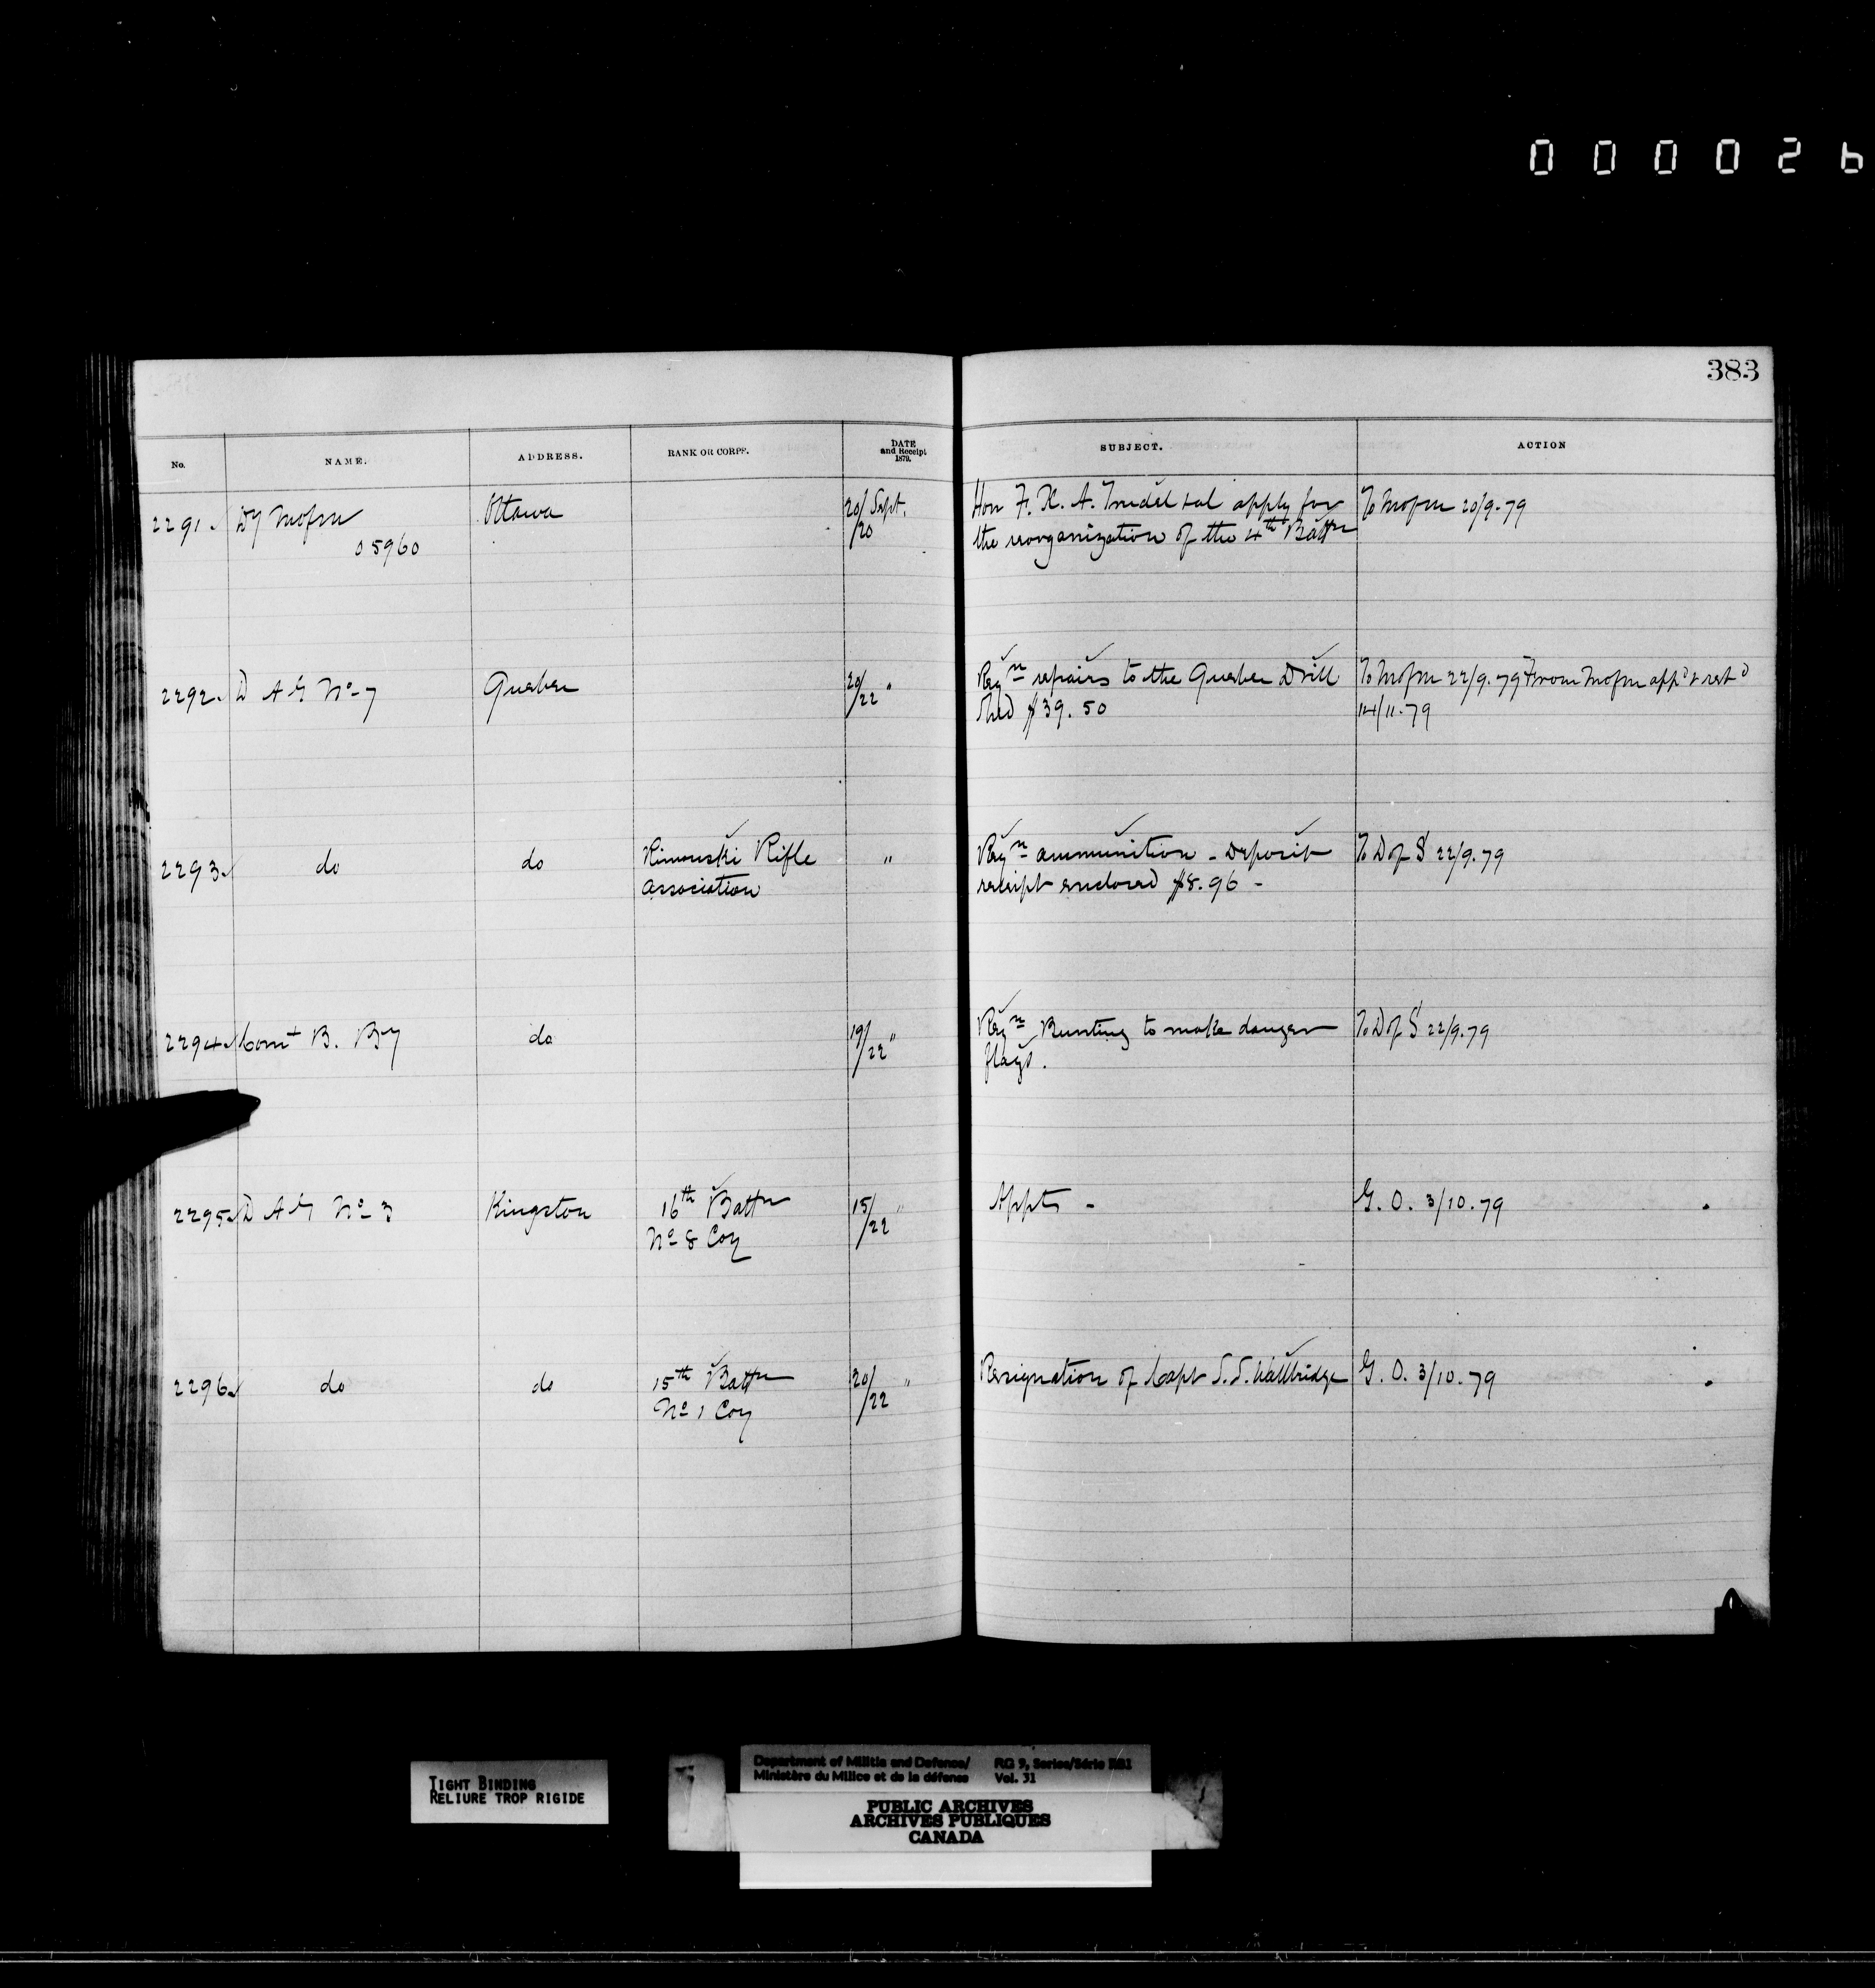 000026
383
No. NAME. ADDRESS. RANK OR CORPS. DATE and Receipt 1879. SUBJECT. ACTION
2291. Dy Mofm Ottawa 20/20 Sept. Hon F. X. A. Trudel & al apply for To Mofm 20/9.79
05960 the reorganization of the 4th Battn
2292. D A G No 7 Quebec 20/22 " Reqn repairs to the Quebec Drill To Mofm 22/9.79 From Mofm app'd & ret'd
Shed $39.50 14/11.79
2293. do do Rimouski Rifle " Reqn ammunition - Deposit To D of S 22/9.79
Association receipt enclosed $8.96 -
2294. Comt B. By do 19/22 " Reqn Bunting to make danger To D of S 22/9.79
flags.
2295. D A G No 3 Kingston 16th Battn 15/22 " Appts - G. O. 3/10.79
No 8 Coy
2296. do do 15th Battn 20/22 " Resignation of Capt S. S. Wallbridge G. O. 3/10.79
No 1 Coy
TIGHT BINDING
RELIURE TROP RIGIDE
Department of Militia and Defence/ RG 9, Series/Série IIB1
Ministère du Milice et de la défense Vol. 31
PUBLIC ARCHIVES
ARCHIVES PUBLIQUES
CANADA